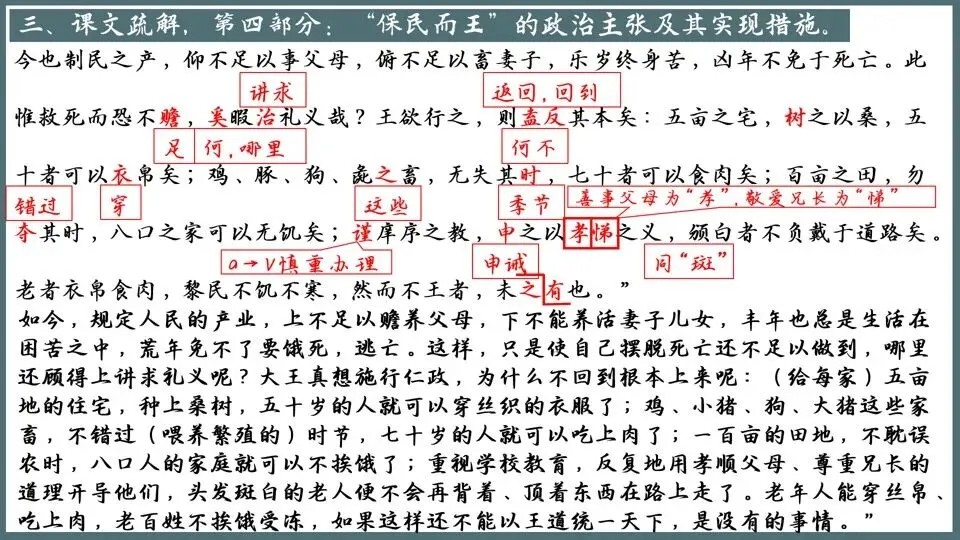 三、课文疏解，第四部分：“保民而王”的政治主张及其实现措施。
今也制民之产，仰不足以事父母，俯不足以畜妻子，乐岁终身苦，凶年不免于死亡。此
讲求
返回，回到
惟救死而恐不赡，奚暇治礼义哉？王欲行之，则盍反其本矣：五亩之宅，树之以桑，五
足
何，哪里
何不
十者可以衣帛矣；鸡、豚、狗、彘之畜，无失其时，七十者可以食肉矣；百亩之田，勿
错过
穿
这些
季节
善事父母为“孝”，敬爱兄长为“悌”
夺其时，八口之家可以无饥矣；谨庠序之教，申之以孝悌之义，颁白者不负戴于道路矣。
a→v慎重办理
申诫
同“斑”
老者衣帛食肉，黎民不饥不寒，然而不王者，未之有也。”
如今，规定人民的产业，上不足以赡养父母，下不能养活妻子儿女，丰年也总是生活在
困苦之中，荒年免不了要饿死，逃亡。这样，只是使自己摆脱死亡还不足以做到，哪里
还顾得上讲求礼义呢？大王真想施行仁政，为什么不回到根本上来呢：（给每家）五亩
地的住宅，种上桑树，五十岁的人就可以穿丝织的衣服了；鸡、小猪、狗、大猪这些家
畜，不错过（喂养繁殖的）时节，七十岁的人就可以吃上肉了；一百亩的田地，不耽误
农时，八口人的家庭就可以不挨饿了；重视学校教育，反复地用孝顺父母、尊重兄长的
道理开导他们，头发斑白的老人便不会再背着、顶着东西在路上走了。老年人能穿丝帛、
吃上肉，老百姓不挨饿受冻，如果这样还不能以王道统一天下，是没有的事情。”